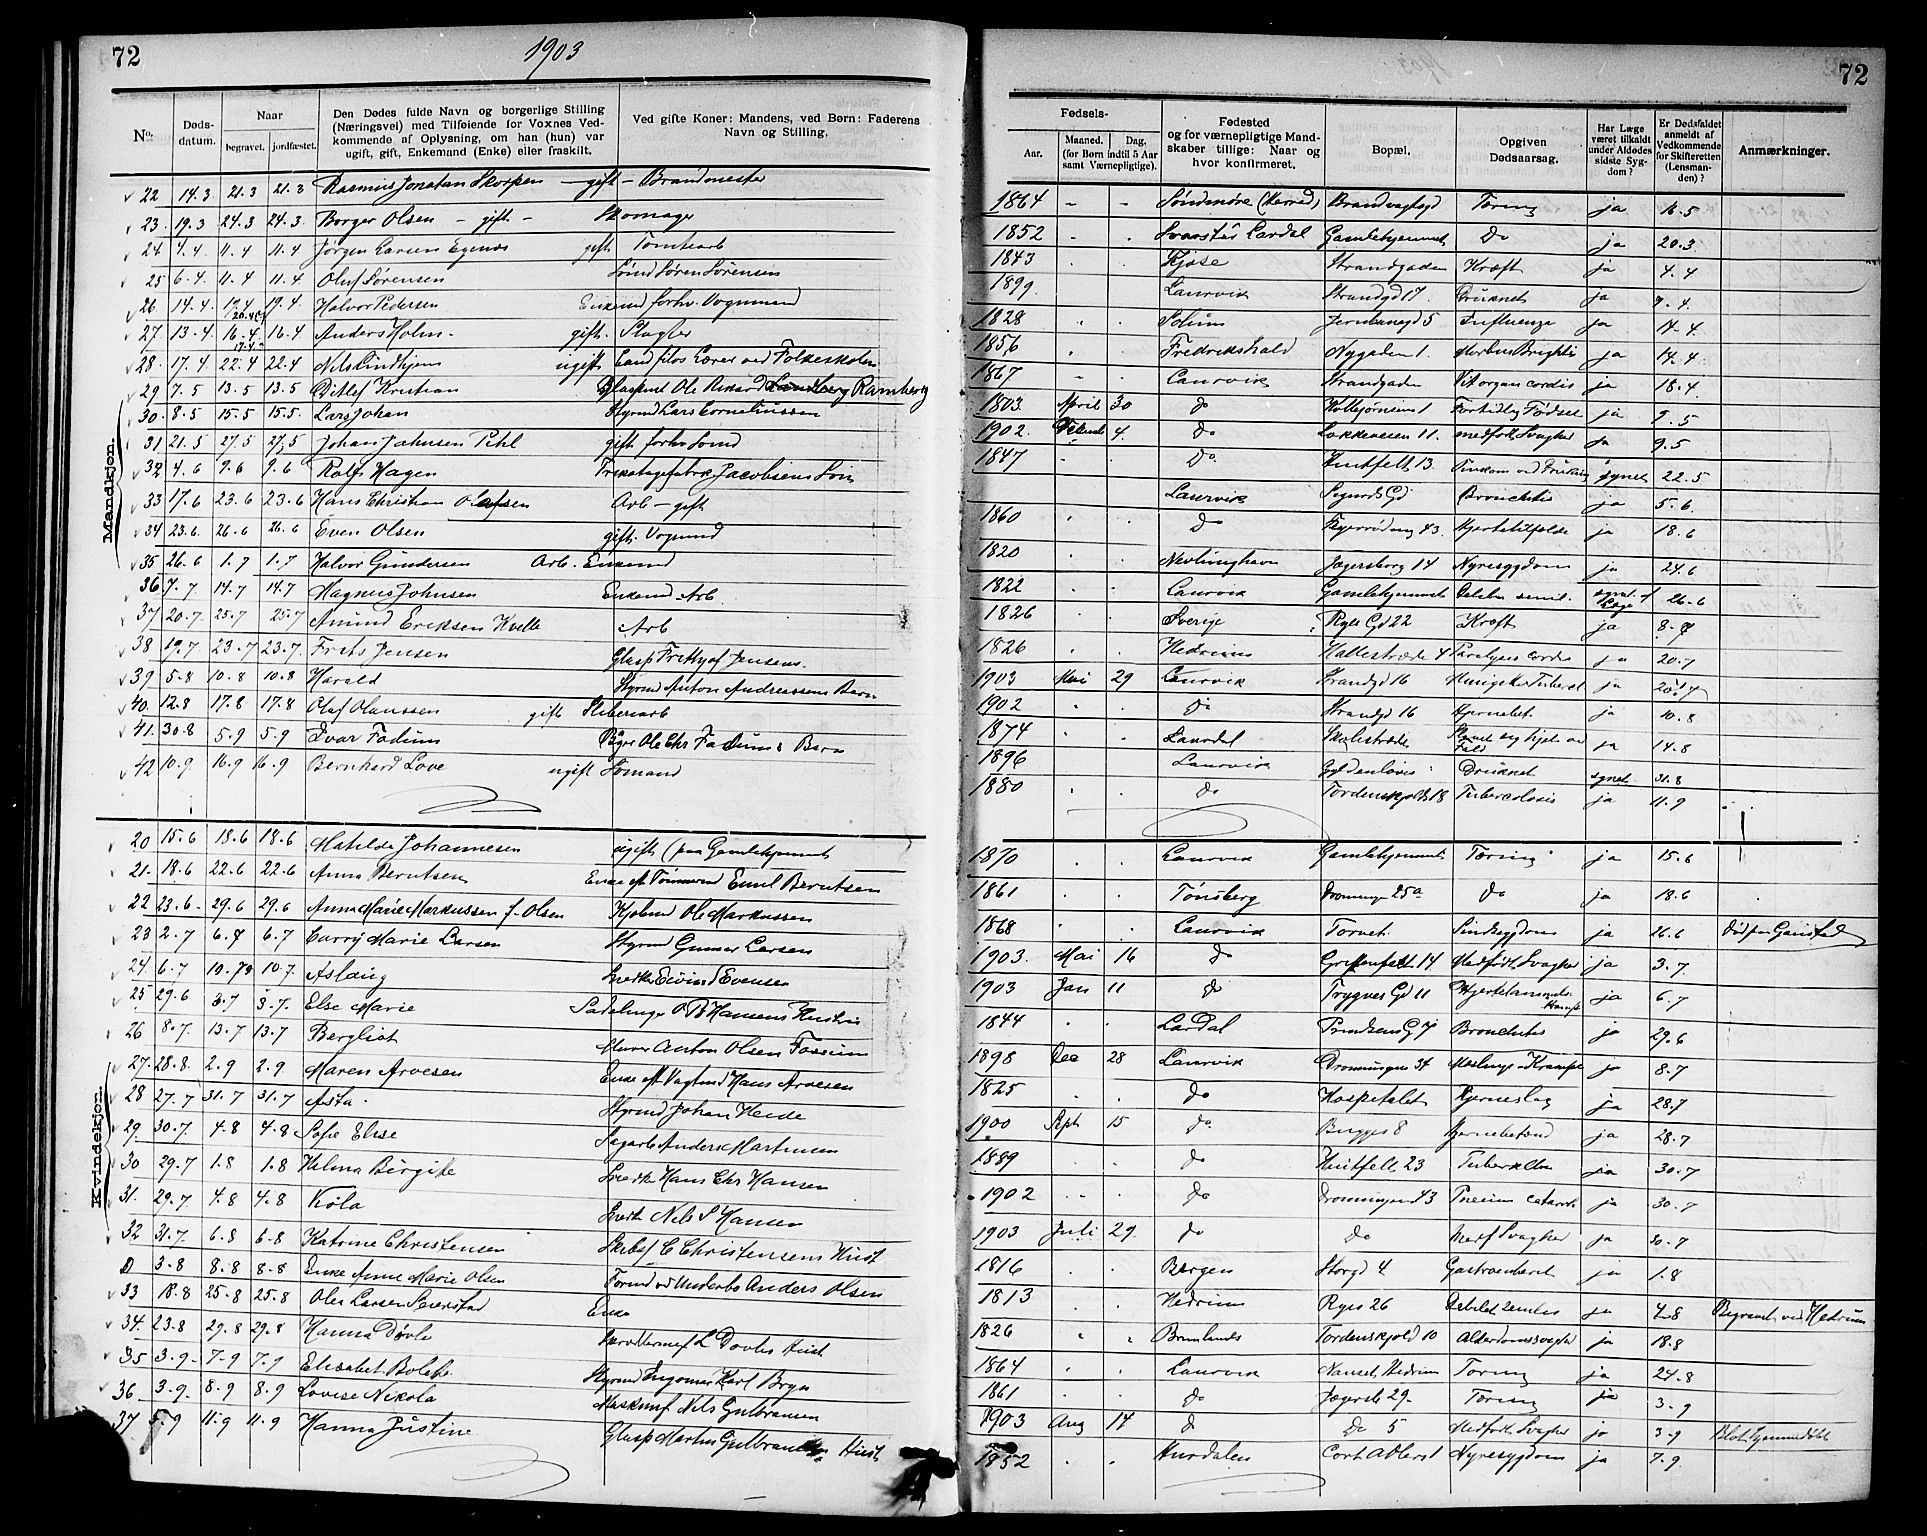 72
1903
72
No.
Døds-
datum.
Naar
begravet.
jordfæstet.
Den Dødes fulde Navn og borgerlige Stilling
(Næringsvei) med Tilføiende for Voxnes Ved-
kommende af Oplysning, om han (hun) var
ugift, gift, Enkemand (Enke) eller fraskilt.
Ved gifte Koner: Mandens, ved Børn: Faderens
Navn og Stilling.
Fødsels-
Aar.
Maaned.
Dag.
(for Børn indtil 5 Aar
samt Værnepligtige).
Fødested
og for værnepligtige Mand-
skaber tillige: Naar og
hvor konfirmeret.
Bopæl.
Opgiven
Dødsaarsag.
Har Læge
været tilkaldt
under Afdødes
sidste Syg-
dom?
Er Dødsfaldet
anmeldt af
Vedkommende
for Skifteretten
(Lensman-
den)?
Anmærkninger.
Mandkjøn.
22 14.3 21.3 21.3 Rasmus Jonatan Skorpen - gift - Brandmester 1864 - - Søndmøre (Herred) Brandvagtgd Tæring ja 16.5
23 19.3 24.3 24.3 Borger Olsen - gift - Skomager 1852 Svarstad Lardal Gamlehjemmet Do ja 20.3
24 4.4 11.4 11.4 Jørgen Larsen Egenæs gift. Tomtearb 1843 Kjose Strandgaden Kræft ja 4.4
25 6.4 11.4 11.4 Oluf Sørensen Sømd Søren Sørensen 1899 Laurvik Strandgd 17. Druknet ja 7.4
26 14.4 19.4 19.4 Halvor Pedersen Enkemd forhv. Vognmand 1828 Solum Jernbanegd 5 Influenza ja 14.4
27 13.4 16.4 16.4 Anders Holm gift. Slagter 1856 Fredrikshald Nygaden 1. Morbus Brightii ja 14.4
28 17.4 22.4 22.4 Nils Lindhjem ugift Cand filos Lærer ved Folkeskolen 1867 Laurvik Strandgaden Vit organ cordis ja 18.4
29 7.5 13.5 13.5 Ditlef Kristian Glaspust Ole Rikard Ramberg 1803 April 30 do Kolbjørnsens 1 Fortidlig Fødsel ja 9.5
30 8.5 15.5 15.5 Lars Johan Styrmd Lars Corneliussen 1902. 4. Do Løkkeveien 11. medfødt Svaghed ja 9.5
31 21.5 27.5 27.5 Johan Jahnsen Pihl gift forhv Sømd 1847 Do Huitfelt 13. Omkom ved Drukning synet 22.5
32 4.6 9.6 9.6 Rolf Hagen Trikotagefabrk Jacobsens Søn Laurvik Sigurds Gd Bronchitis ja 5.6
33 17.6 23.6 23.6 Hans Christian Olafsen Arb - gift 1860 Do 43. Hjertetilfælde ja 18.6
34 23.6 26.6 26.6 Even Olsen gift. Vognmd 1820 Nevlinghavn Jægersborg 14 Nyresygdom ja 24.6
35 26.6 1.7 1.7 Halvor Gundersen Arb. Enkemd 1822 Laurvik Gamlehjemmet senil. synet af Læge 26.6
36 7.7 14.7 14.7 Magnus Johnsen Enkemd Arb 1826 Sverige Ryes Gd 22 Kræft ja 8.7
37 20.7 25.7 25.7 Amund Eriksen Kvelle Arb 1826 Hedrum Hallestræde 4 Paralysis cordis ja 20.7
38 19.7 23.7 23.7 Frits Jensen Glasp Fretthjof Jensens 1903 Mai 29 Laurvik Strandgd 16 ja 20.7
39 5.8 10.8 10.8 Harald Styrmd Anton Andreassens Barn 1902 do Strandgd 16 Hjernebet. ja 10.8
40. 12.8 17.8 17.8 Olaf Olaussen gift Sliberiarb 1874 Laurdal Skolestræde ja 14.8
41. 30.8 5.9 5.9 Ivar Fadum Bager Ole Chr Fadums Barn 1896 Laurvik Gyldenløves Druknet synet 31.8
42 10.9 16.9 16.9 Bernhard Love ugift Sømand 1880 do Tordenskjolds 18 Tuberculosis ja 11.9
Kvindekjøn.
20 15.6 18.6 18.6 Matilde Johannesen ugift (paa Gamlehjemmet 1870 Laurvik Gamlehjemmet Tæring ja 15.6
21. 18.6 22.6 22.6 Anna Berntsen Enke af Tømmermd Emil Berntsen 1861 Tønsberg Dronninge 25a do ja 18.6
22 23.6 29.6 29.6 Anna Marie Markussen f. Olsen Kjøbmd Ole Markussen 1868 Laurvik Torvet. Sindssygdom ja 26.6 død paa Gaustad
23 2.7 6.7 6.7 Carry Marie Larsen Styrmd Gunnar Larsen 1903. Mai 16 do Griffenfelt 14 Medfødt Svaghed ja 3.7
24. 6.7 10.7 10.7. Aslaug Snedker Eivind Evensen 1903 Jan 11 do Trygves Gd 11 ja 6.7
25 29.6 3.7 3.7. Else Marie Sadelmager O B Hansens Hustru 1844 Lardal Prindsens G 7 Bronchitis ja 29.6
26 8.7. 13.7 13.7 Bergliot Murer Anton Olsen Fossum 1898 Dec 28 Laurvik Dronningens 34 Meslinger Krampe ja 8.7
27. 28.8. 2.9 2.9 Maren Arvesen Enke af Vagtmd Hans Arvesen 1825 do Hospitalet Hjerneslag ja 28.7
28 27.7 31.7 31.7 Asta Styrmd Johan Heide 1900 Apr 15 do Bugges 8 Hjernebetænd ja 28.7
29. 30.7. 4.8 4.8 Sofie Elise Sagarb Anders Martinsen 1889 do Huitfelt 23 Tuberkulose ja 30.7
30 29.7 1.8 1.8 Helma Birgitte Snedk Hans Chr Hansen 1902 do Dronningens 43 ja 30.7
31. 29.7 4.8 4.8 Viola Snedk Nils S Hansen 1903 Juli 29. do do Medf Svaghed ja 30.7
32 31.7 6.8 6.8 Katrine Christensen Skibsf C Christensens Hust 1816 Bergen Storgd 4 ja 1.8
D 3.8 8.8 8.8 Enke Anne Marie Olsen Anders Olsen 1813 Hedrum Ryes 26 ja 4.8 Begravet ved Hedrum
33 18.8 25.8 25.8 Olea Larsen Seierstad Enke 1826 Brunlanes Tordenskjold 10 Alderdomssvaghed ja 18.8
34. 23.8 29.8 29.8 Hanna Døvle L Døvles Hust 1864 Laurvik Nanset, Hedrum Tæring ja 24.8
35 3.9 7.9 7.9 Elisabet Bolette Styrmd Ingomar Karl Bryn 1861 do Jægersb 29. Tæring ja 3.9
36. 3.9. 8.9 8.9 Lovise Nikola Maskinrf Nils Gulbransen 1903 Aug 14 do Do 5 Medfødt Svaghed ja 3.9
37. 5.9 11.9 11.9 Hanna Justine Glasp Martin Gulbransens Hust 1852 Hurdalen Cort Adlers 1 Nyresygdom ja 7.9